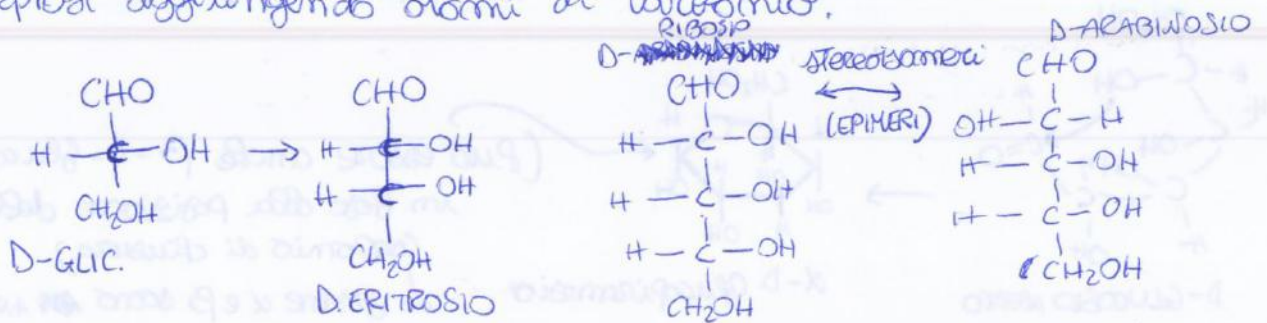 aggiungendo atomi di carbonio.
D-RIBOSIO
stereoisomeri
(EPIMERI)
D-ARABINOSIO
CHO
H C OH
CH2OH
D-GLIC.
CHO
H C OH
H C OH
CH2OH
D.ERITROSIO
CHO
H - C - OH
H - C - OH
H - C - OH
CH2OH
CHO
OH - C - H
H - C - OH
H - C - OH
CH2OH